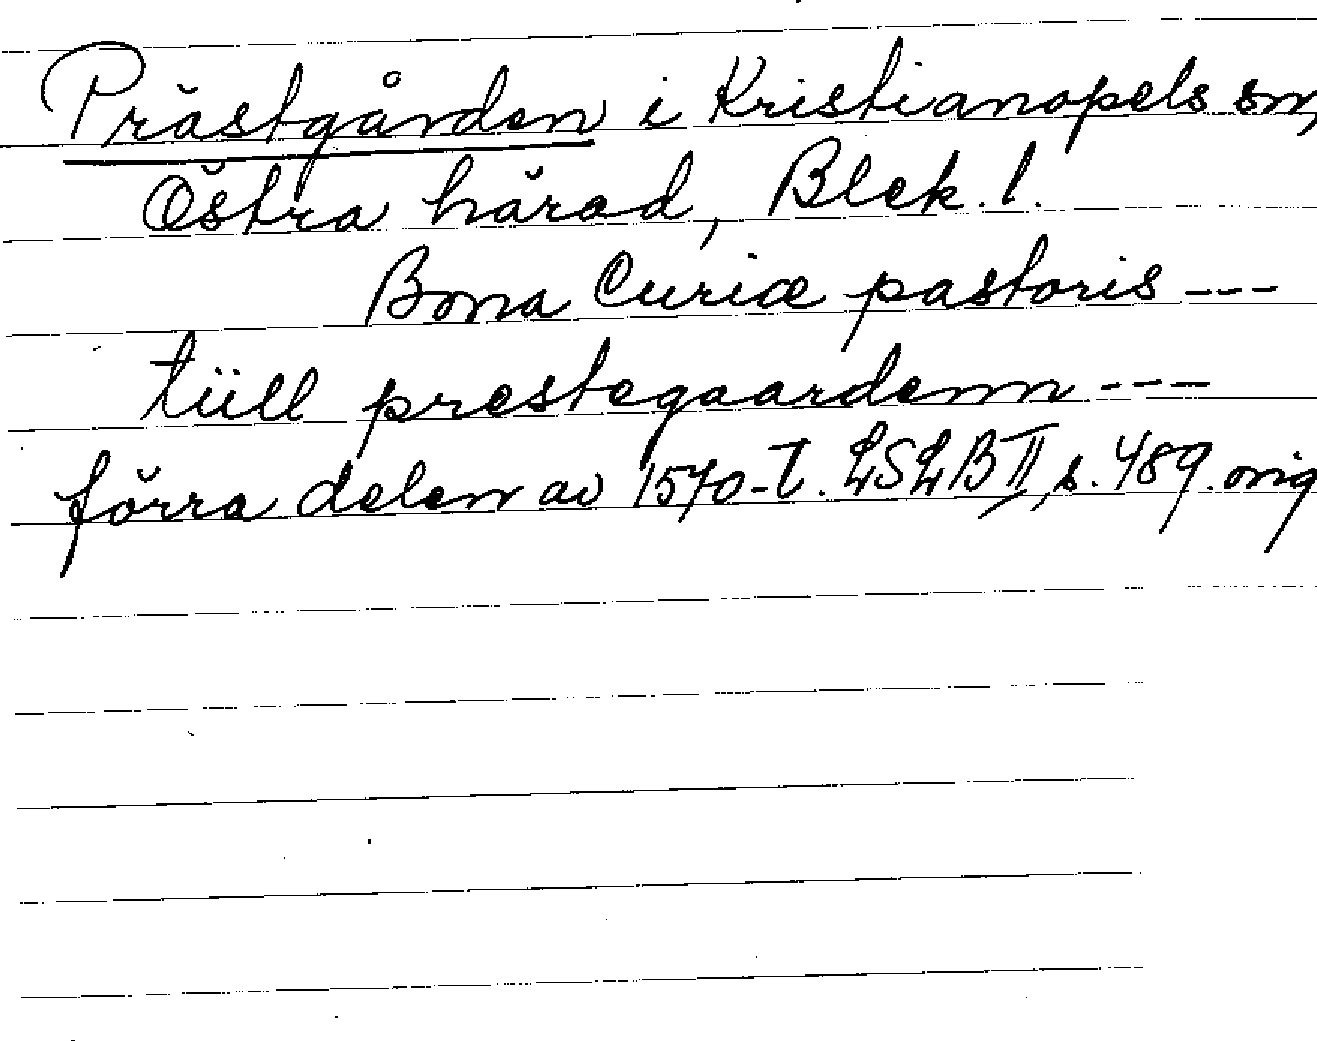 Prästgården i Kristianopels sn,
Östra härad, Blek. l.
Bona Curiæ pastoris ---
tüll prestegaardenn ---
förra delen av 1570-t. LSLB II, s. 489. orig